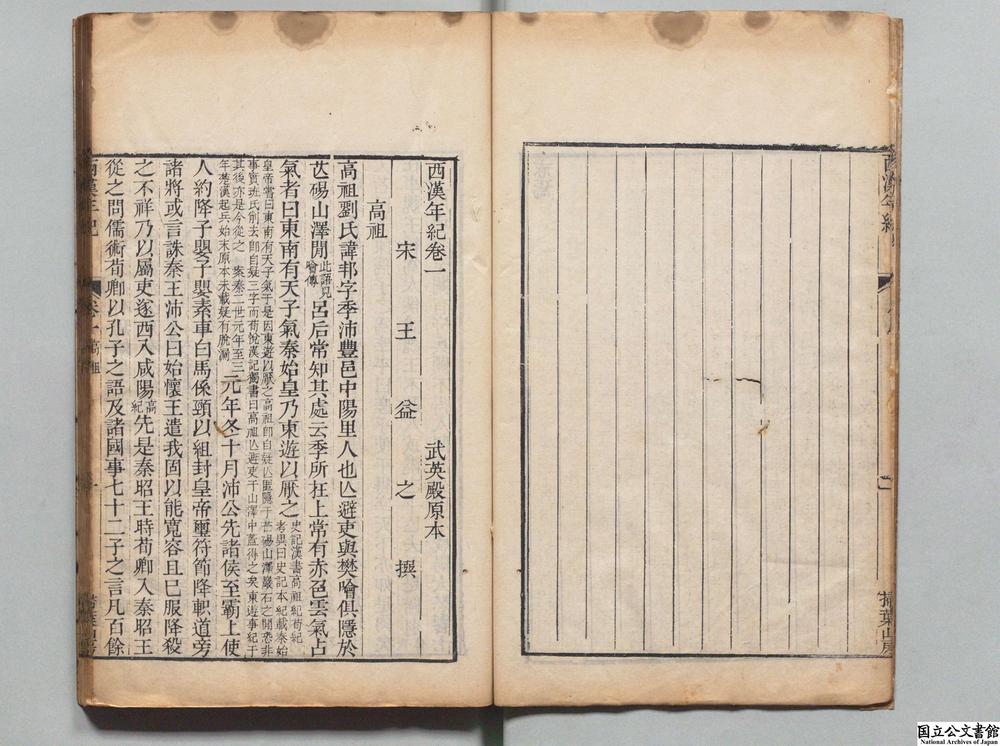 西漢年紀
掃葉山房
西漢年紀卷一
武英殿原本
宋王益之撰
高祖
高祖劉氏諱邦字季沛豐邑中陽里人也亾避吏與樊噲俱隱於
芒碭山澤閒此語見噲傳呂后常知其處云季所在上常有赤色雲氣占
氣者曰東南有天子氣秦始皇乃東遊以厭之史記漢書高祖紀荀紀考異曰史記本紀載秦始
皇帝嘗曰東南有天子氣于是因東遊以厭之高祖卽自疑亾匿隱于芒碭山澤巖石之閒悉非
事實班氏削去卽自疑三字而荀悅漢紀獨書曰高祖亾避吏于山澤中蓋得之矣東遊事紀于
其後亦是今從之 案秦二世元年至三年爲漢起兵始末原本未載疑有脫漏元年冬十月沛公先諸侯至霸上使
人約降子嬰子嬰素車白馬係頸以組封皇帝璽符節降軹道旁
諸將或言誅秦王沛公曰始懷王遣我固以能寬容且已服降殺
之不祥乃以屬吏遂西入咸陽高紀先是秦昭王時荀卿入秦昭王
從之問儒術荀卿以孔子之語及諸國事七十二子之言凡百餘
西漢年紀
卷一高祖
一
掃葉山房
国立公文書館
National Archives of Japan